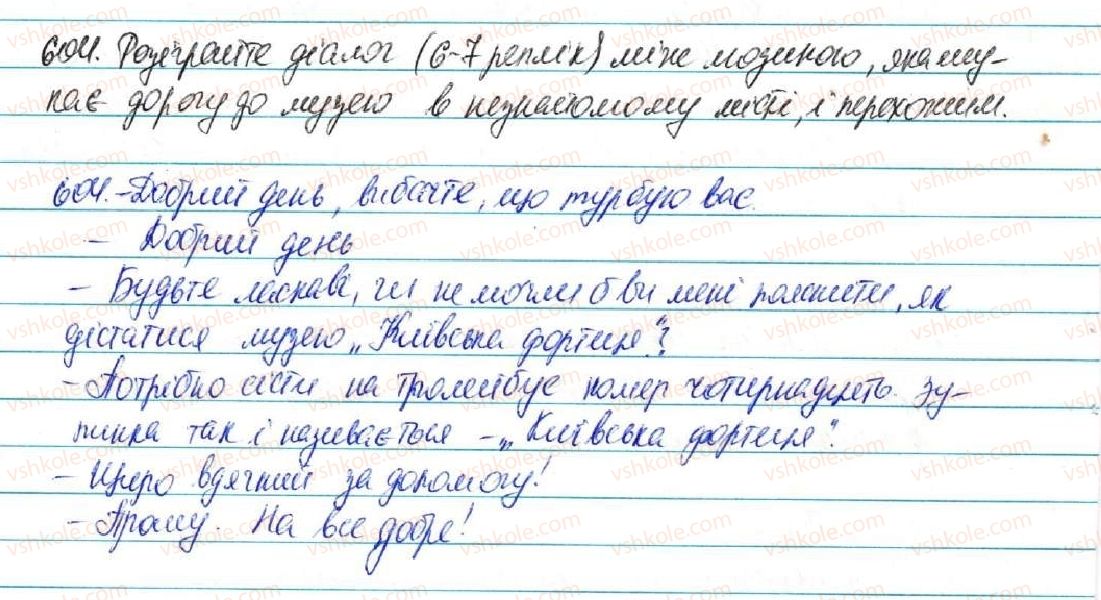 604. Розіграйте діалог (6-7 реплік) між людиною, яка шу-
кає дорогу до музею в незнайомому місті, і перехожим.
604. - Добрий день, вибачте, що турбую вас.
- Добрий день
- Будьте ласкаві, чи не могли б ви мені пояснити, як
дістатися музею „Київська фортеця"?
- Потрібно сісти на тролейбус номер чотирнадцять. Зу-
пинка так і називається - „Київська фортеця".
- Щиро вдячний за допомогу!
- Прошу. На все добре!